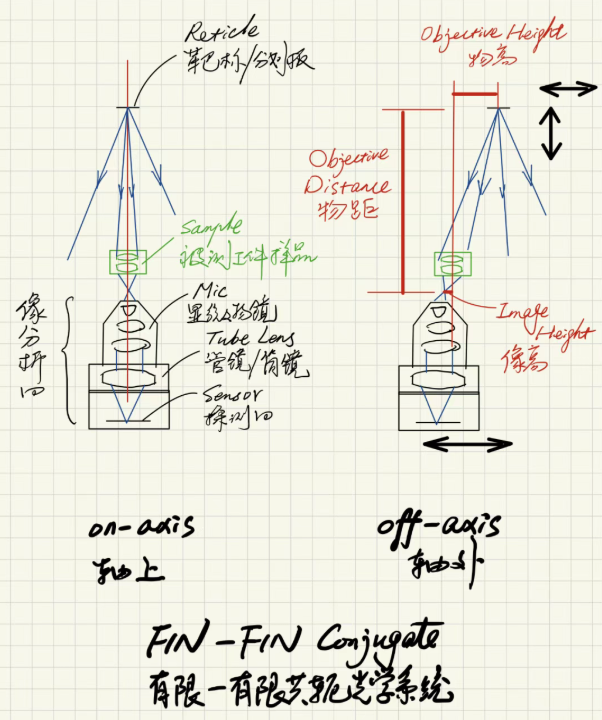 Reticle
靶标/分划板
Sample
被测工件样品
像分析口
Mic
显微物镜
Tube Lens
管镜/筒镜
Sensor
探测口
on-axis
轴上
Objective Height
物高
Objective
Distance
物距
Image
Height
像高
off-axis
轴外
FIN-FIN Conjugate
有限-有限共轭光学系统